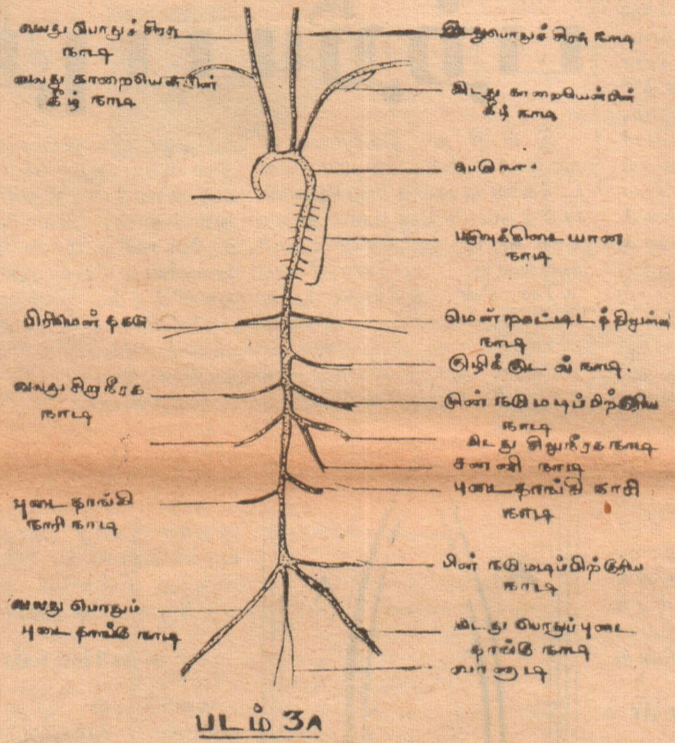 வலது பொதுச் சிரசு
நாடி
வலது காறையென்பின்
கீழ் நாடி
பிரிமென்தகடு
வலது சிறுநீரக
நாடி
புடைதாங்கி
நாரி நாடி
வலது பொதும்
புடைதாங்கு நாடி
இடதுபொதுச் சிரசு நாடி
இடது காறையென்பின்
கீழ் நாடி
பெருநா
பழுவுக்கிடையான
நாடி
நாடி
குழிக்குடல் நாடி.
முன் நடுமடிப்பிற்குரிய
நாடி
இடது சிறுநீரகநாடி
சனனி நாடி
புடைதாங்கி நாரி
நாடி
பின் நடுமடிப்பிற்குரிய
நாடி
இடது பொதுப்புடை
தாங்கு நாடி
வாணாடி
படம் 3A